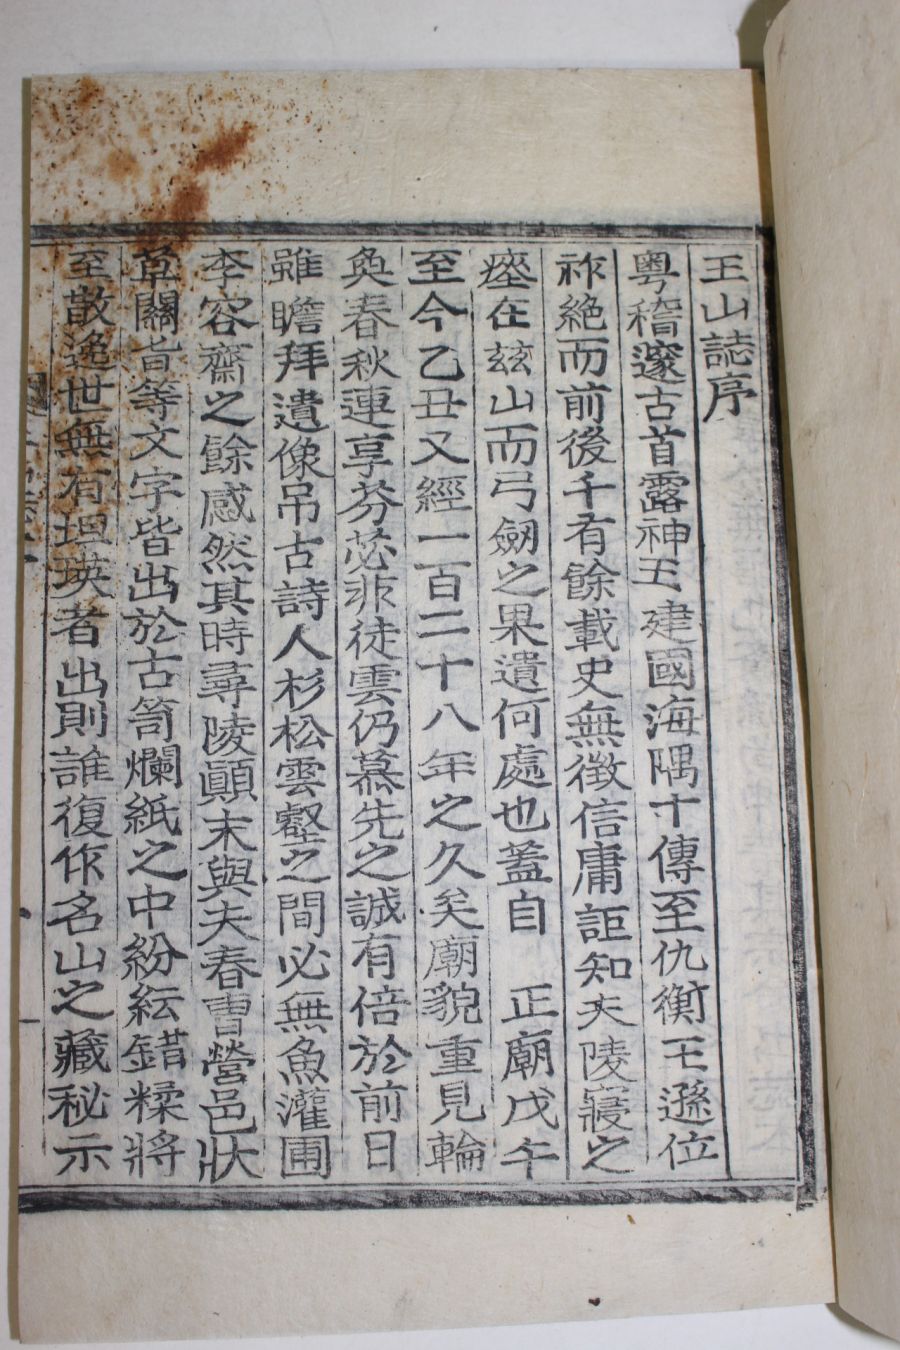 王山誌序
粤稽邃古首露神王建國海隅十傳至仇衡王遜位
祚絶而前後千有餘載史無徴信庸詎知夫陵寢之
瘞在玆山而弓劒之果遺何處也盖自 正廟戊午
至今乙丑又經一百二十八年之久矣廟貌重見輪
奐春秋連享芬苾非徒雲仍慕先之誠有倍於前日
雖瞻拜遺像吊古詩人杉松雲壑之間必無魚灌圃
李容齋之餘感然其時尋陵顚末與夫春曺營邑狀
草關旨等文字皆出於古笥爛紙之中紛紜錯糅將
至散逸世無有坦瑛者出則誰復作名山之藏秘示